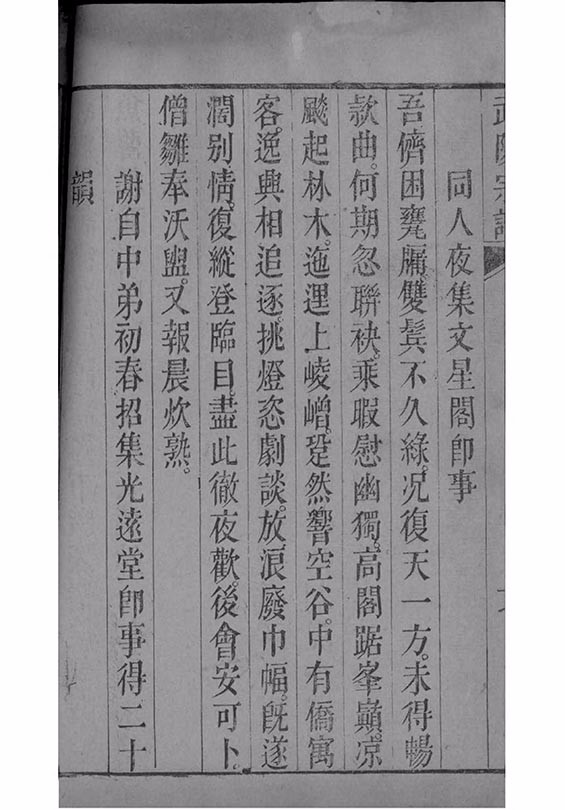 同人夜集文星閣卽事
吾儕困甕牖。雙鬓不久綠。况復天一方。未得暢
款曲。何期忽聯袂。乘暇慰幽獨。高閣踞峯巔。凉
颷起林木。迤逕上崚嶒。跫然響空谷。中有僑寓
客。逸興相追逐。挑燈恣劇談。放浪廢巾幅。旣遂
濶别情。復縱登臨目。盡此徹夜歡。後會安可卜。
僧雛奉沃盥。又報晨炊熟。
謝自中弟初春招集光遠堂卽事得二十
韻